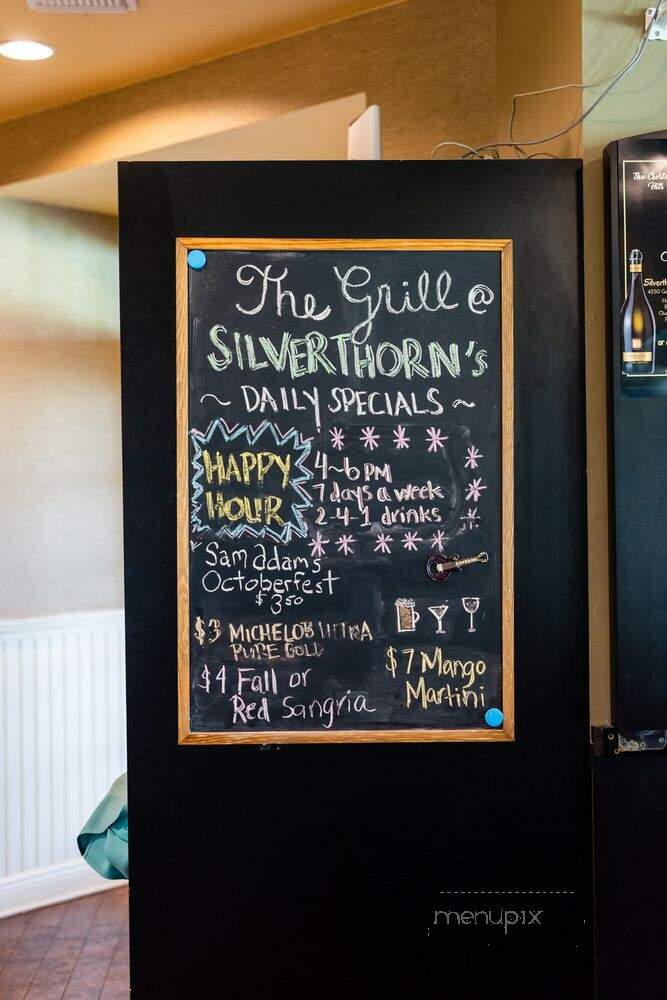 The Grill @
SILVERTHORN's
~ DAILY SPECIALS ~
HAPPY
HOUR
4~6 PM
7 days a week
2-4-1 drinks
Sam adams
Octoberfest
$3.50
$3 MICHELOB ULTRA
PURE GOLD
$4 Fall or
Red Sangria
$7 Mango
Martini
Hills
4550
menupix